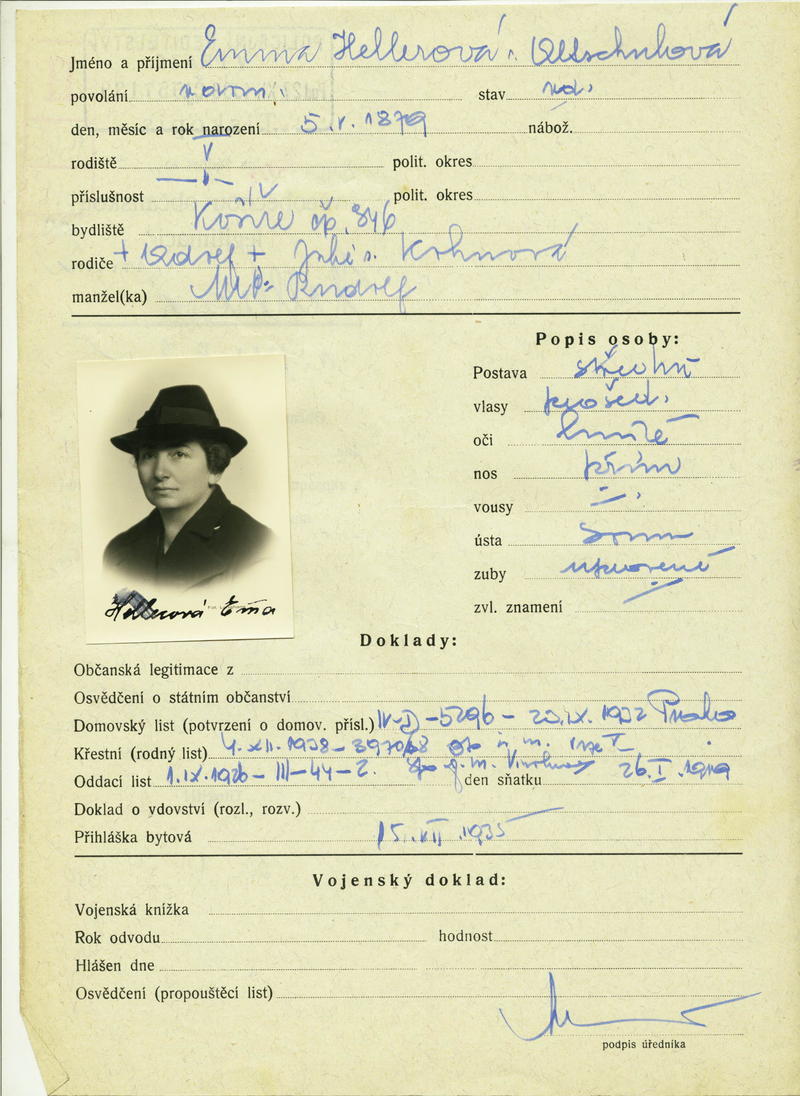 Jméno a příjmení Emma Hellerová r.
povolání stav vd.
den, měsíc a rok narození 5. V. 1879 nábož.
rodiště polit. okres
příslušnost polit. okres
bydliště Košíře čp. 846
rodiče
manžel(ka) Rudolf
Popis osoby:
Postava
vlasy prošed.
oči hnědé
nos přím
vousy –.
ústa soum
zuby
zvl. znamení
Hellerová Ema
Doklady:
Občanská legitimace z
Osvědčení o státním občanství
Domovský list (potvrzení o domov. přísl.) IV-D-5296 - 23.IX. 1932 Praha
Křestní (rodný list) 4. XII. 1938 -
Oddací list 1. IX. 1926 - III-44-2. den sňatku 26. I. 1919
Doklad o vdovství (rozl., rozv.)
Přihláška bytová 15. VII. 1935
Vojenský doklad:
Vojenská knížka
Rok odvodu hodnost
Hlášen dne
Osvědčení (propouštěcí list)
podpis úředníka